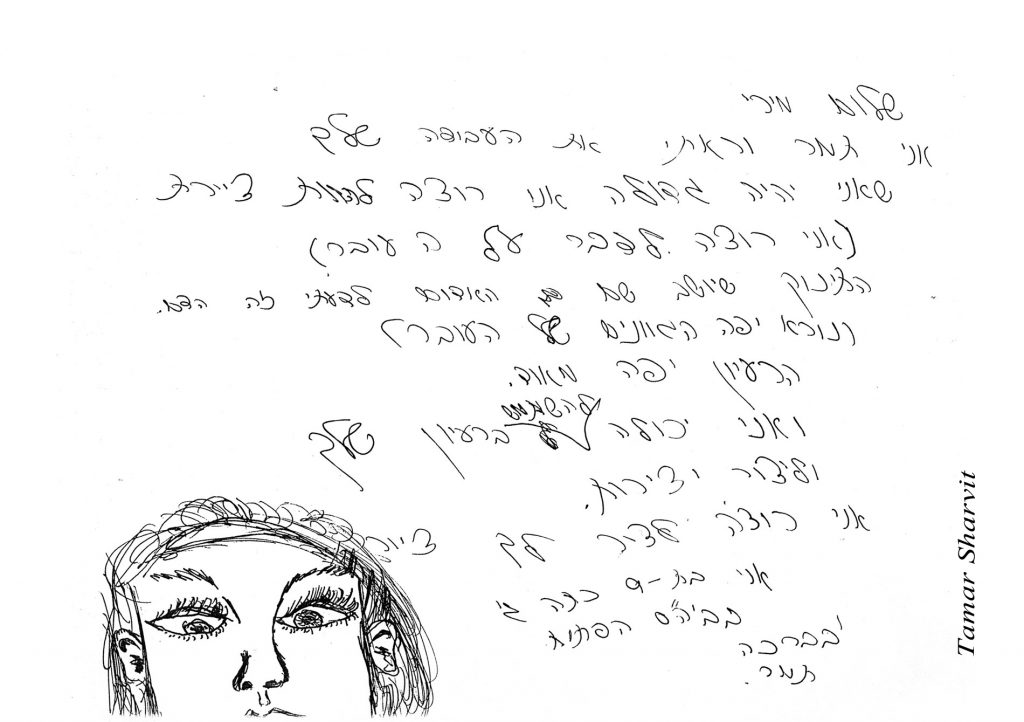 שלום מירי
אני תמר וראתי את העבודה שלך
שאני יהיה גדולה אני רוצה להיות ציירת
(אני רוצה לדבר על העובר)
התינוק שיושב שם האודום לדעתי זה הדם.
(נורא יפה הגוונים של העובר)
הרעיון יפה מאוד.
ואני יכולה להשתמש ברעיון שלך
וליצור יצירות.
אני רוצה לציר לך ציור
אני בת-9 כתה ג'
בביה"ס הפתוח
בברכה
תמר.
Tamar Sharvit